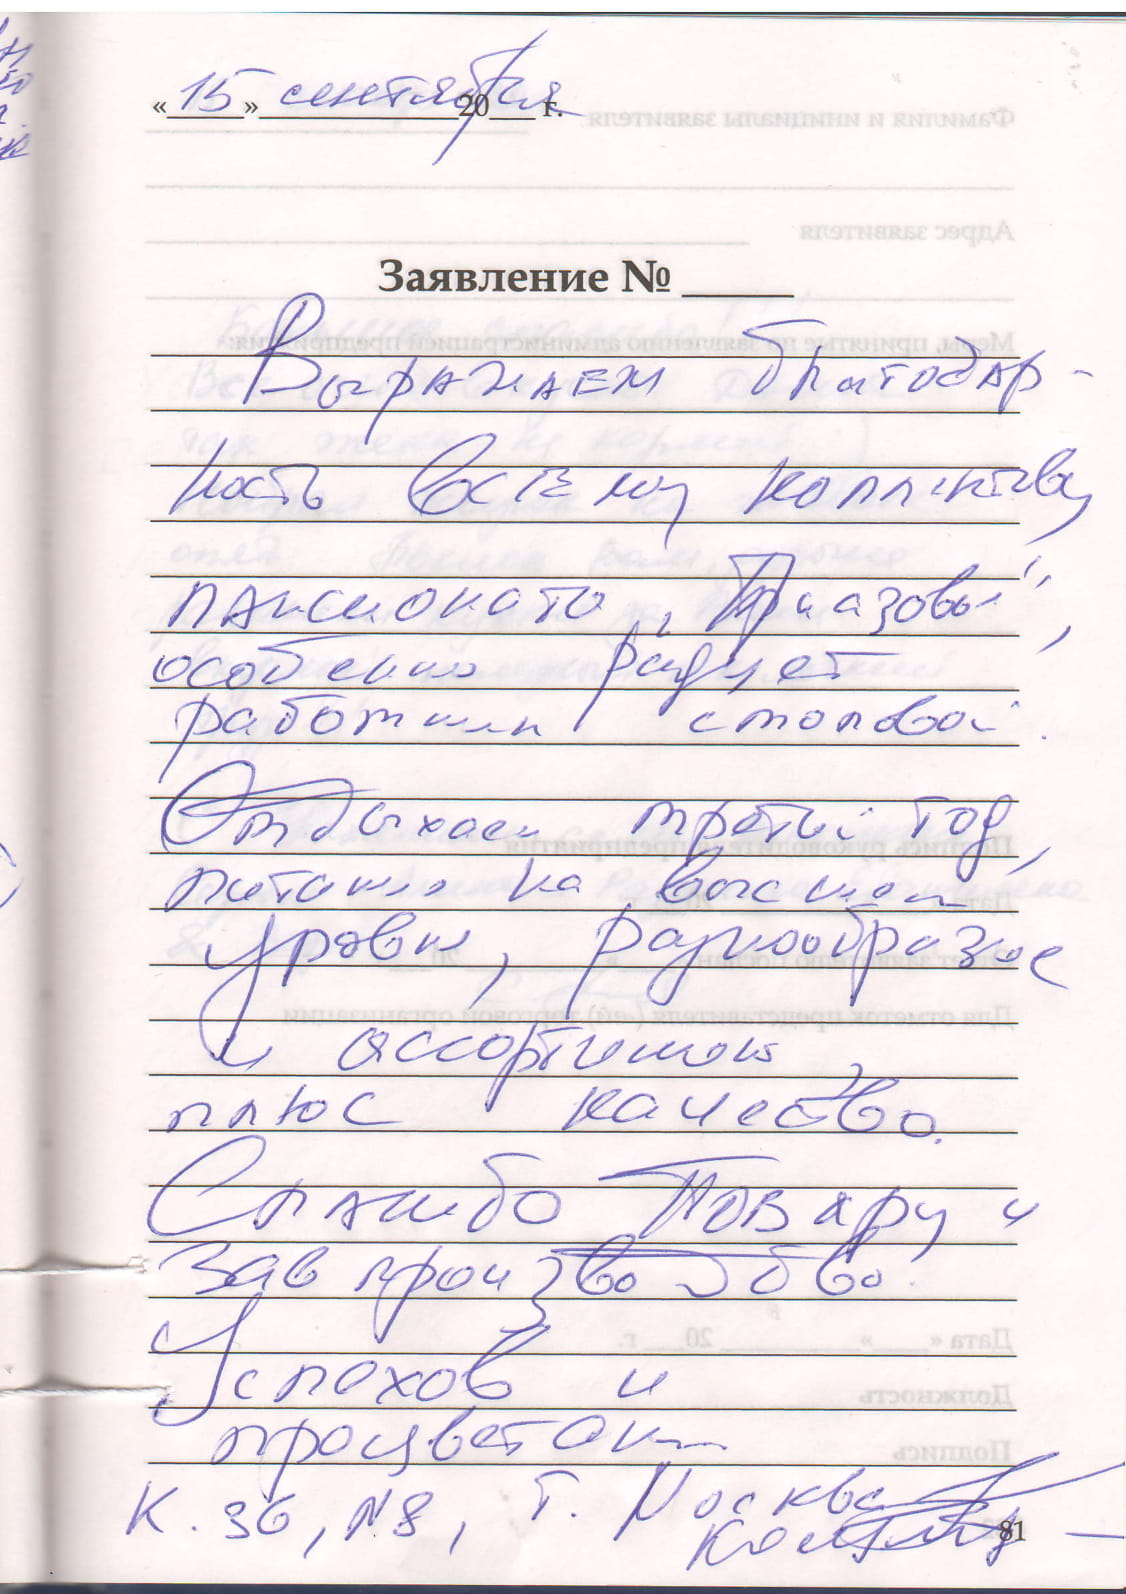 « 15 » сентября 20___ г.
Заявление № _____
Выражаем благодар-
ность всему коллективу
пансионата „Приазовье",
особенно радует
работники столовой.
Отдыхаем третий год,
питание на высшем
уровне, разнообразие
и ассортимент,
плюс качество.
Спасибо повару и
зав производство.
Успехов и
процветания
К. 36, N8, г. Москва
81